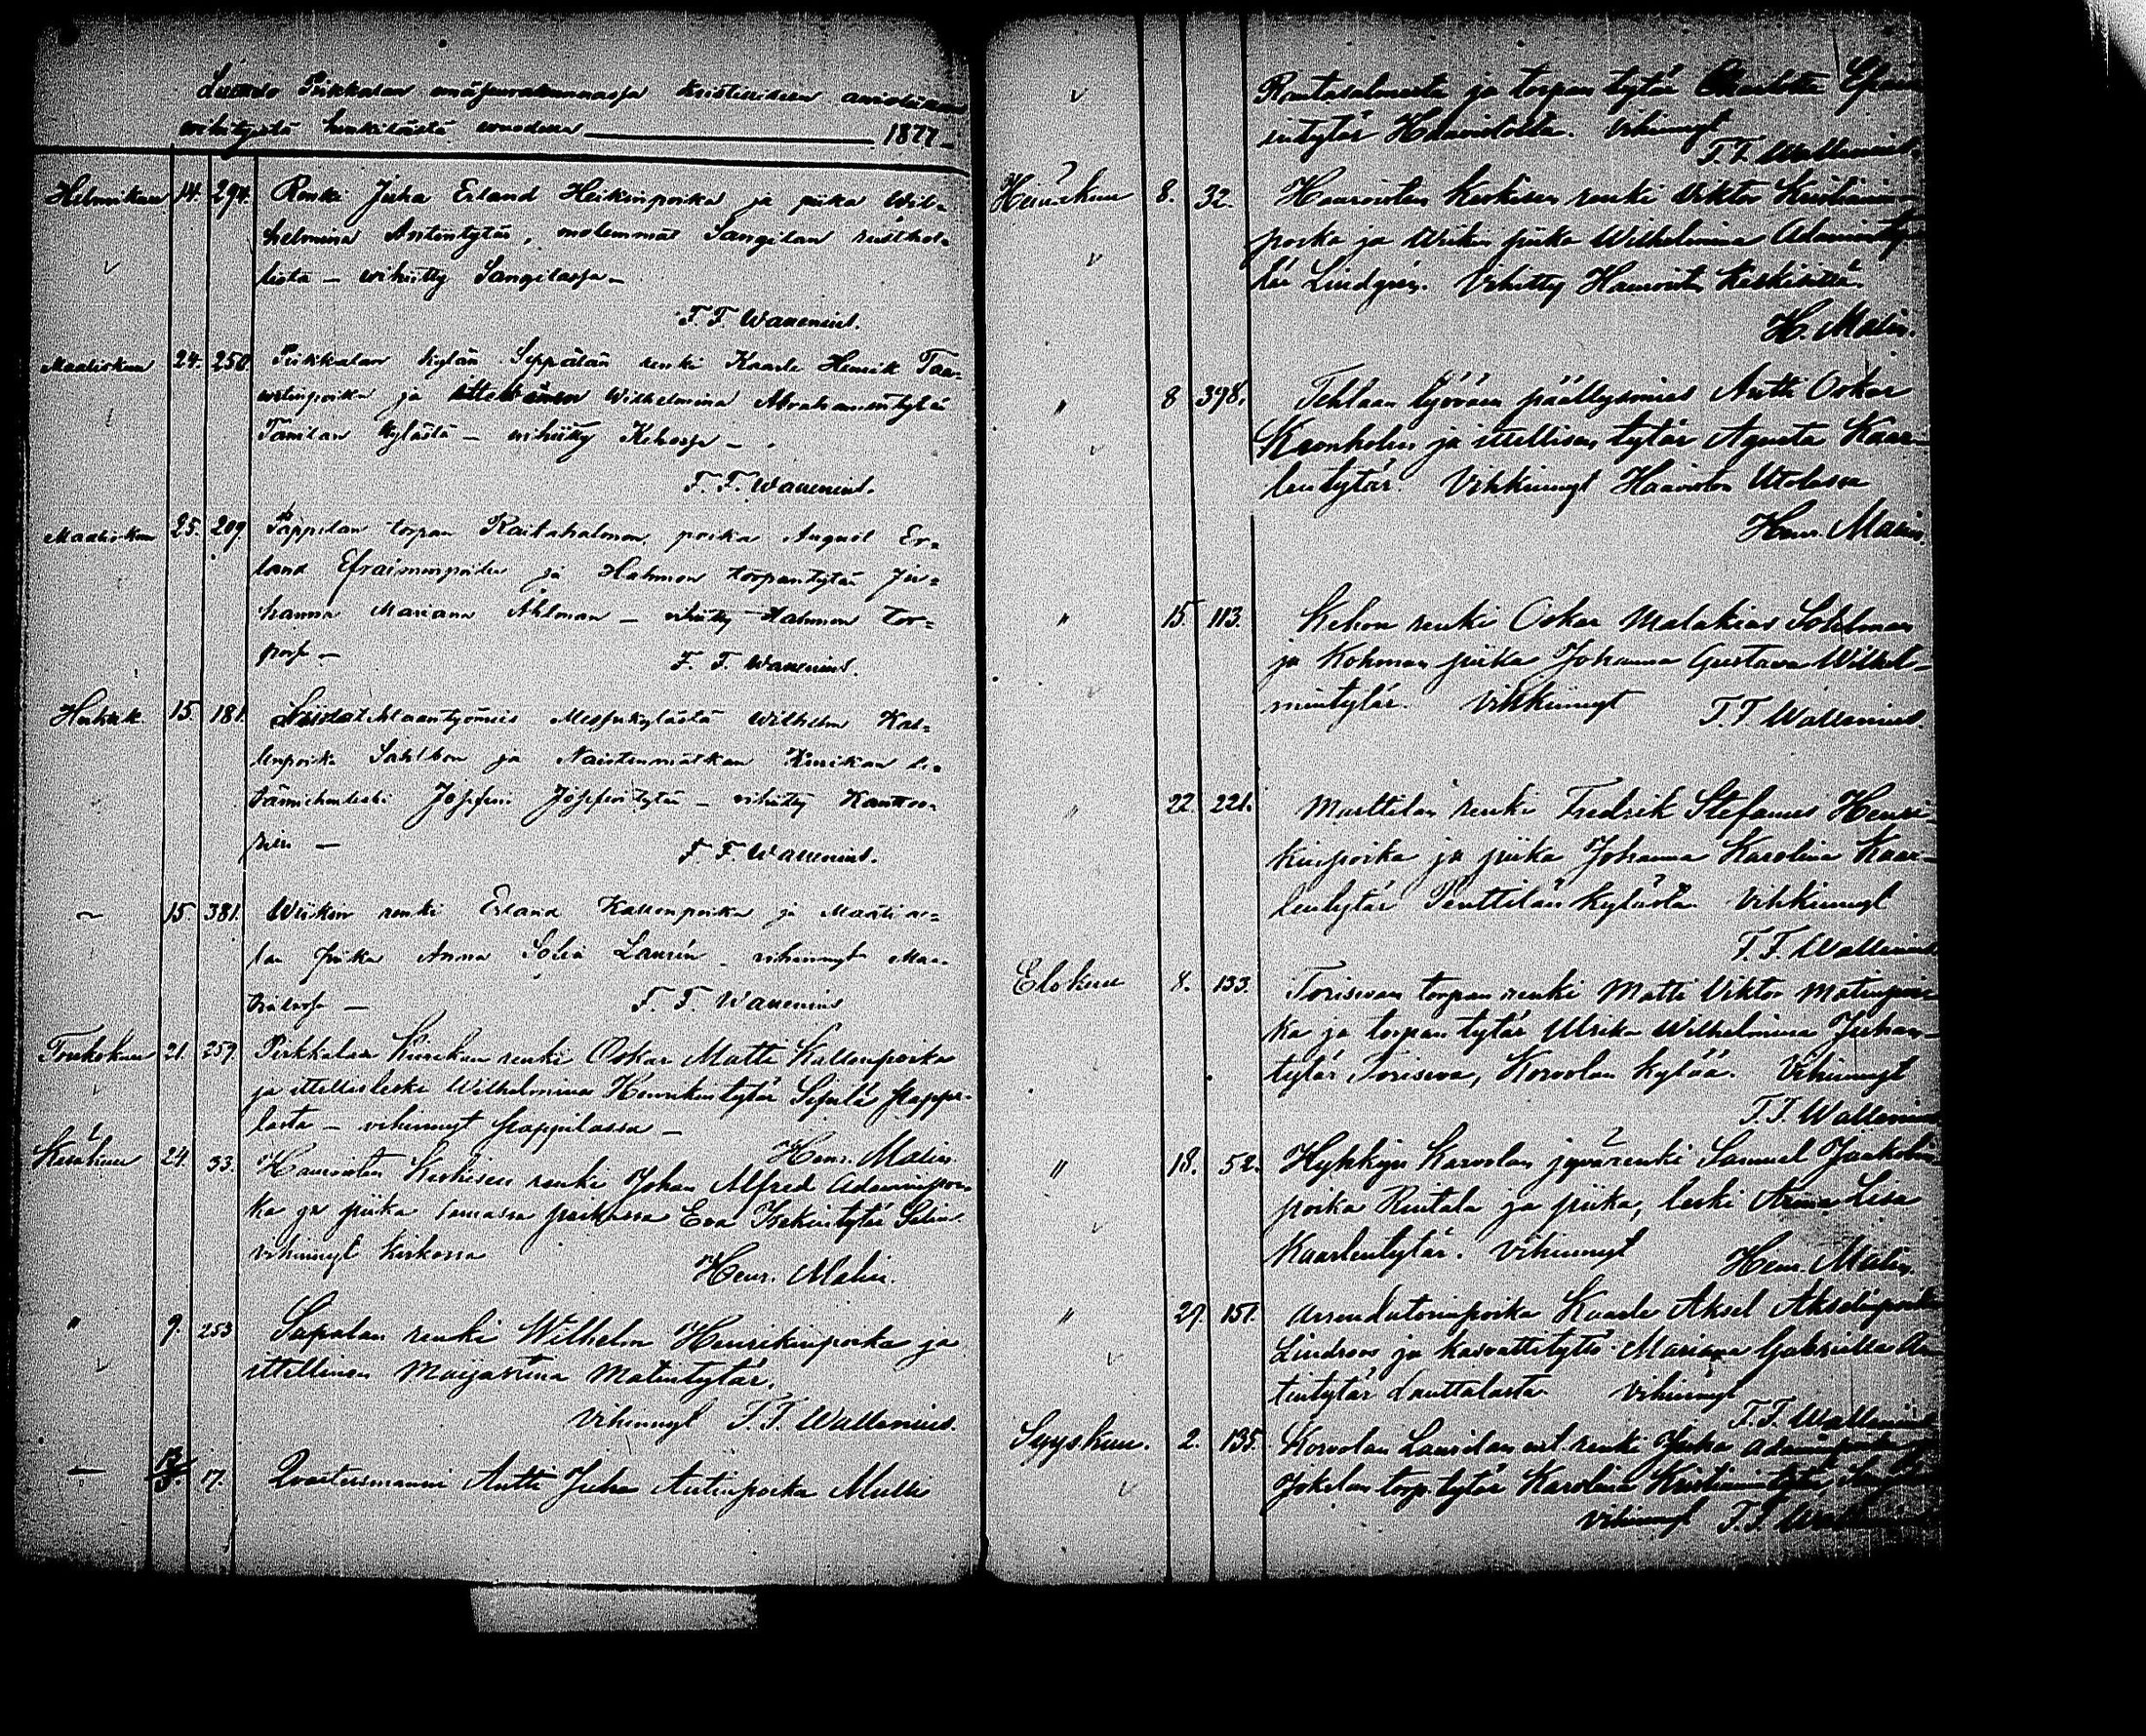 Luettelo Pirkkalan emäseurakunnassa kristilliseen avioliittoon
vihityistä henkilöistä vuodella 1877.
Helmikuu 14. 294. Renki Juha Erland Heikinpoika ja piika Wil-
helmina Antintytär, molemmat Sangilan rusthol-
lista - vihitty Sangilassa -
F. F. Wallenius.
Maaliskuu 24. 250. Pirkkalan kylän Seppälän renki Kaarle Henrik Taa-
vetinpoika ja Wilhelmina Abrahamintytär
Tanilan kylästä - vihitty Kehossa -
F. F. Wallenius.
Maaliskuu 25. 209. Pappilan torpan Raitahalmon poika August Er-
land Efraiminpoika ja Hahmon torpantytär Ju-
hanna Mariana Ahlman - vihitty Hahmon tor-
passa - F. F. Wallenius.
Huhtik. 15. 181. työmies Messukylästä Wilhelm Kal-
lenpoika Sahlbom ja Naistenmatkan Kurikan
leski Josefiina Josefintytär - vihitty
F. F. Wallenius.
- 15. 381. Wiikin renki Erland Kallenpoika ja Maatia-
lan piika Anna Sofia Laurén - vihkinnyt Maa-
tialassa - F. F. Wallenius
Toukokuu 21. 259. Pirkkalan Kurikan renki Oskar Matti Kallenpoika
ja itellisleski Wilhelmina Henrikintytär Sipilä Pappi-
lasta - vihinnyt Pappilassa -
Henr. Malin.
Kesäkuu 24. 33. Haavisten Keskisen renki Johan Alfred Adaminpoi-
ka ja piika samassa paikassa Eva Iisakintytär Selin
vihinnyt kirkossa
Henr. Malin.
" 9. 253 Sapalan renki Wilhelm Henrikinpoika ja
itellinen Maijastina Matintytär.
Vihinnyt F. F. Wallenius.
- 17. Antti Juha Antinpoika
ja torpan tytär Charlotta
Haavistolta. Vihinnyt
F. F. Wallenius.
Heinäkuu 8. 32. Haavisten Keskisen renki Viktor Kristianin-
poika ja Wiikin piika Wilhelmina Adaminty-
tär Lindgren. Vihitty Haaviston Keskisellä.
H. Malin.
" 8 398. Tehtaan työväen päällysmies Antti Oskar
Kronholm ja itellisen tytär Agneta Kaar-
lentytär. Vihkinnyt Haaviston Uotolassa
Henr. Malin.
" 15. 113. Kehon renki Oskar Malakias Sohlman
ja Kohmon piika Johanna Gustava Wilhel-
mintytär. Vihkinnyt F. F. Wallenius.
" 22. 221. Marttilan renki Fredrik Stefanus Henri-
kinpoika ja piika Johanna Karolina Kaar-
lentytär Penttilän kylästä. Vihkinnyt
F. F. Wallenius
Elokuu 8. 133. Torisevan torpan renki Matti Viktor Matinpoi-
ka ja torpan tytär Ulrika Wilhelmina Juhan-
tytär Toriseva, Korvolan kylää. Vihinnyt
F. F. Wallenius
" 18. 52. Hyhkyn Karvolan jyvärenki Samuel Jaakobin
poika Rintala ja piika, leski Anna Lisa
Kaarlentytär. Vihinnyt Henr. Malin.
" 29. 151. Arrendatorinpoika Kaarle Aksel Akselinpoika
Lindroos ja kasvattitytti Mariana Gabriella An-
tintytär Lauttalasta. Vihinnyt
F. F. Wallenius
Syyskuu. 2. 135. Korvolan Laurilan renki Juha Adaminpoika ja
Jokelan torp. tytär Karolina Kristianintytär
Vihinnyt F. F. Wallenius